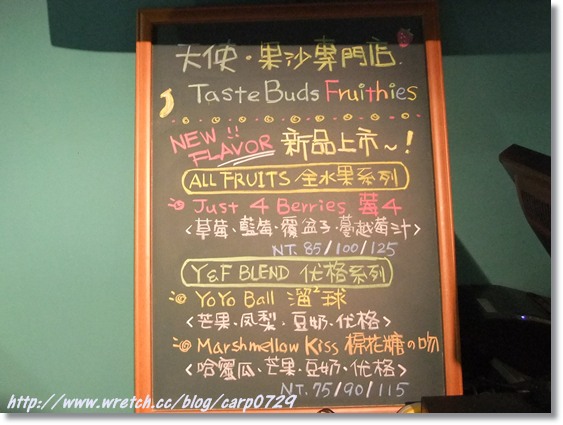 天使・果沙專門店
Taste Buds Fruithies
NEW!! FLAVOR 新品上市~!
ALL FRUITS 全水果系列
Just 4 Berries 莓4
<草莓、藍莓、覆盆子、蔓越莓汁>
NT. 85/100/125
Y&F BLEND 优格系列
YoYo Ball 溜²球
<芒果、凤梨、豆奶、优格>
Marshmellow Kiss 棉花糖の吻
<哈蜜瓜、芒果、豆奶、优格>
NT. 75/90/115
http://www.wretch.cc/blog/carp0729